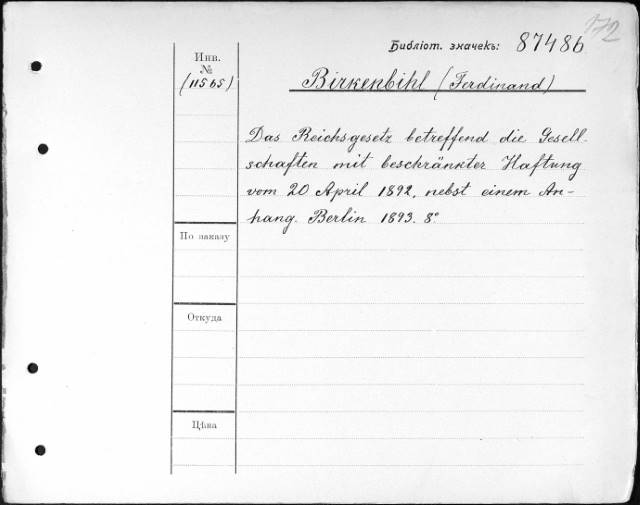 172
Библіот. значекъ: 87486
Инв.
№
(11565)
Birkenbihl (Ferdinand)
Das Reichsgesetz betreffend die Gesell-
schaften mit beschränkter Haftung
vom 20 April 1892, nebst einem An-
hang. Berlin 1893. 8°
По заказу
Откуда
Цѣна